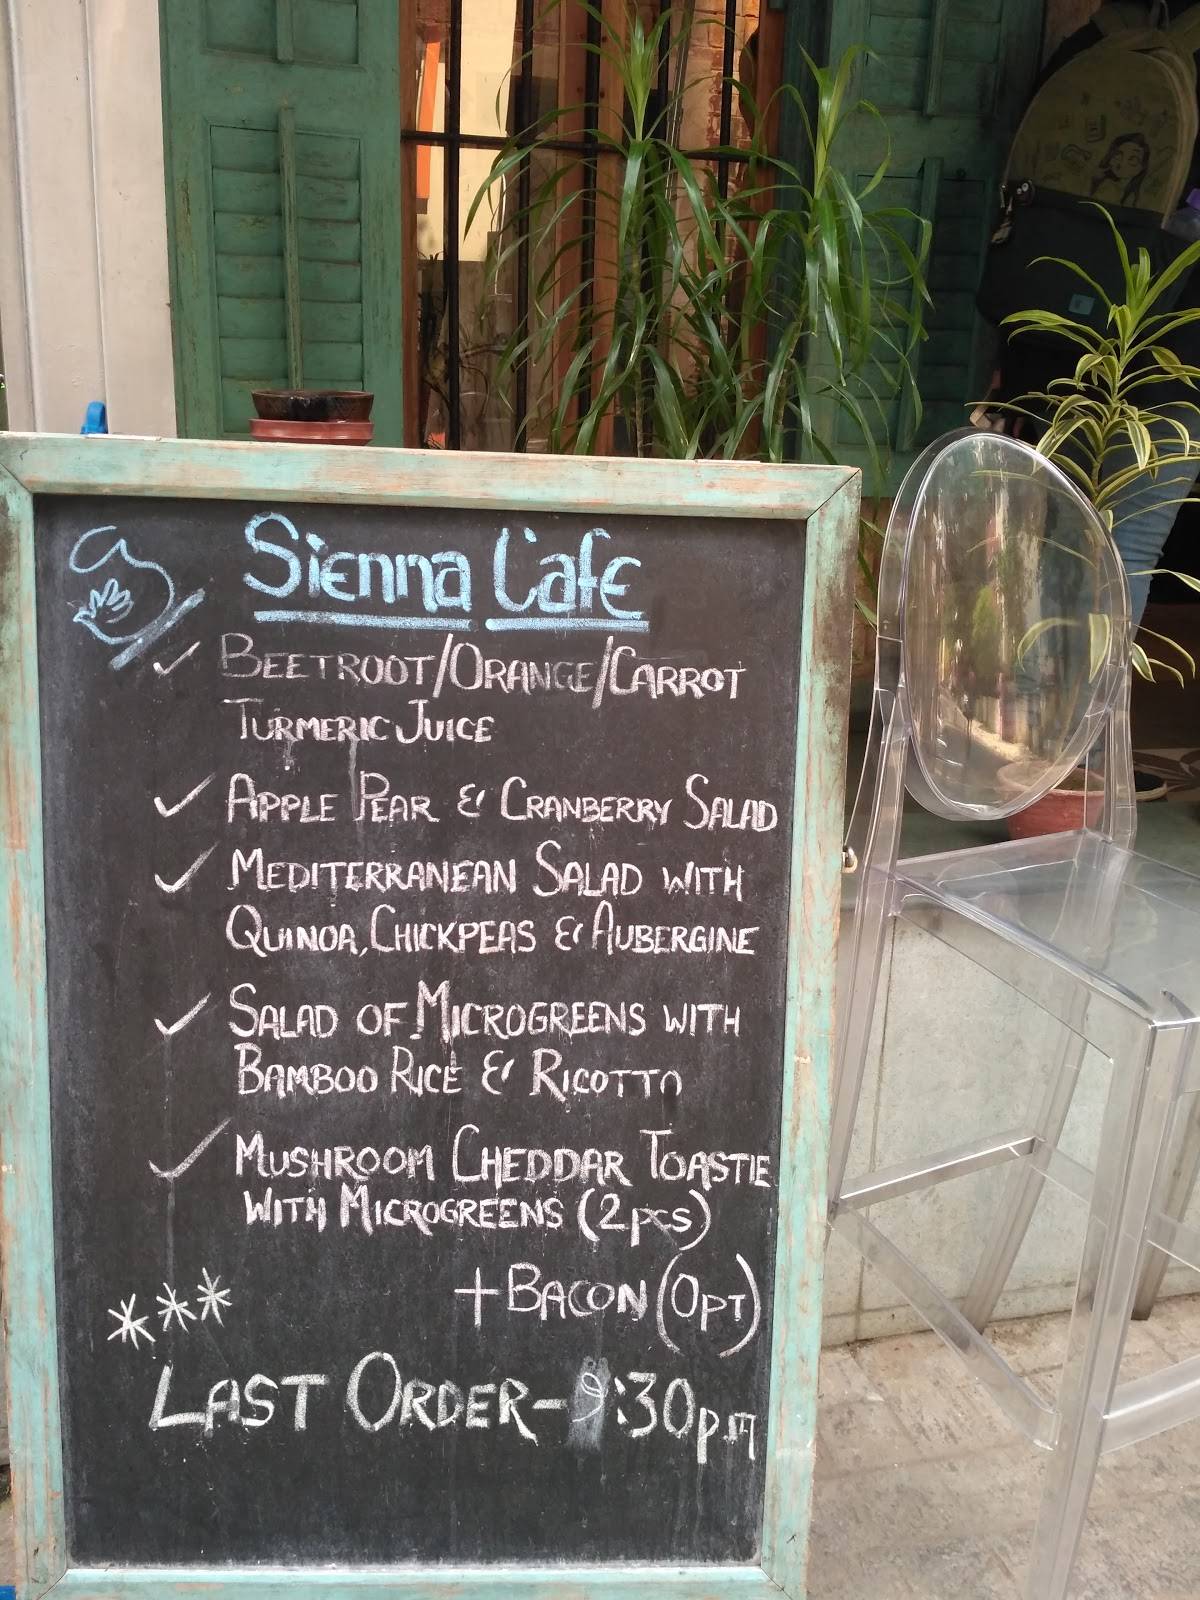 Sienna Cafe
✓ BEETROOT/ORANGE/CARROT
TURMERIC JUICE
✓ APPLE PEAR & CRANBERRY SALAD
✓ MEDITERRANEAN SALAD WITH
QUINOA, CHICKPEAS & AUBERGINE
✓ SALAD OF MICROGREENS WITH
BAMBOO RICE & RICOTTA
✓ MUSHROOM CHEDDAR TOASTIE
WITH MICROGREENS (2pcs)
+ BACON (OPT)
***
LAST ORDER - 9:30pm